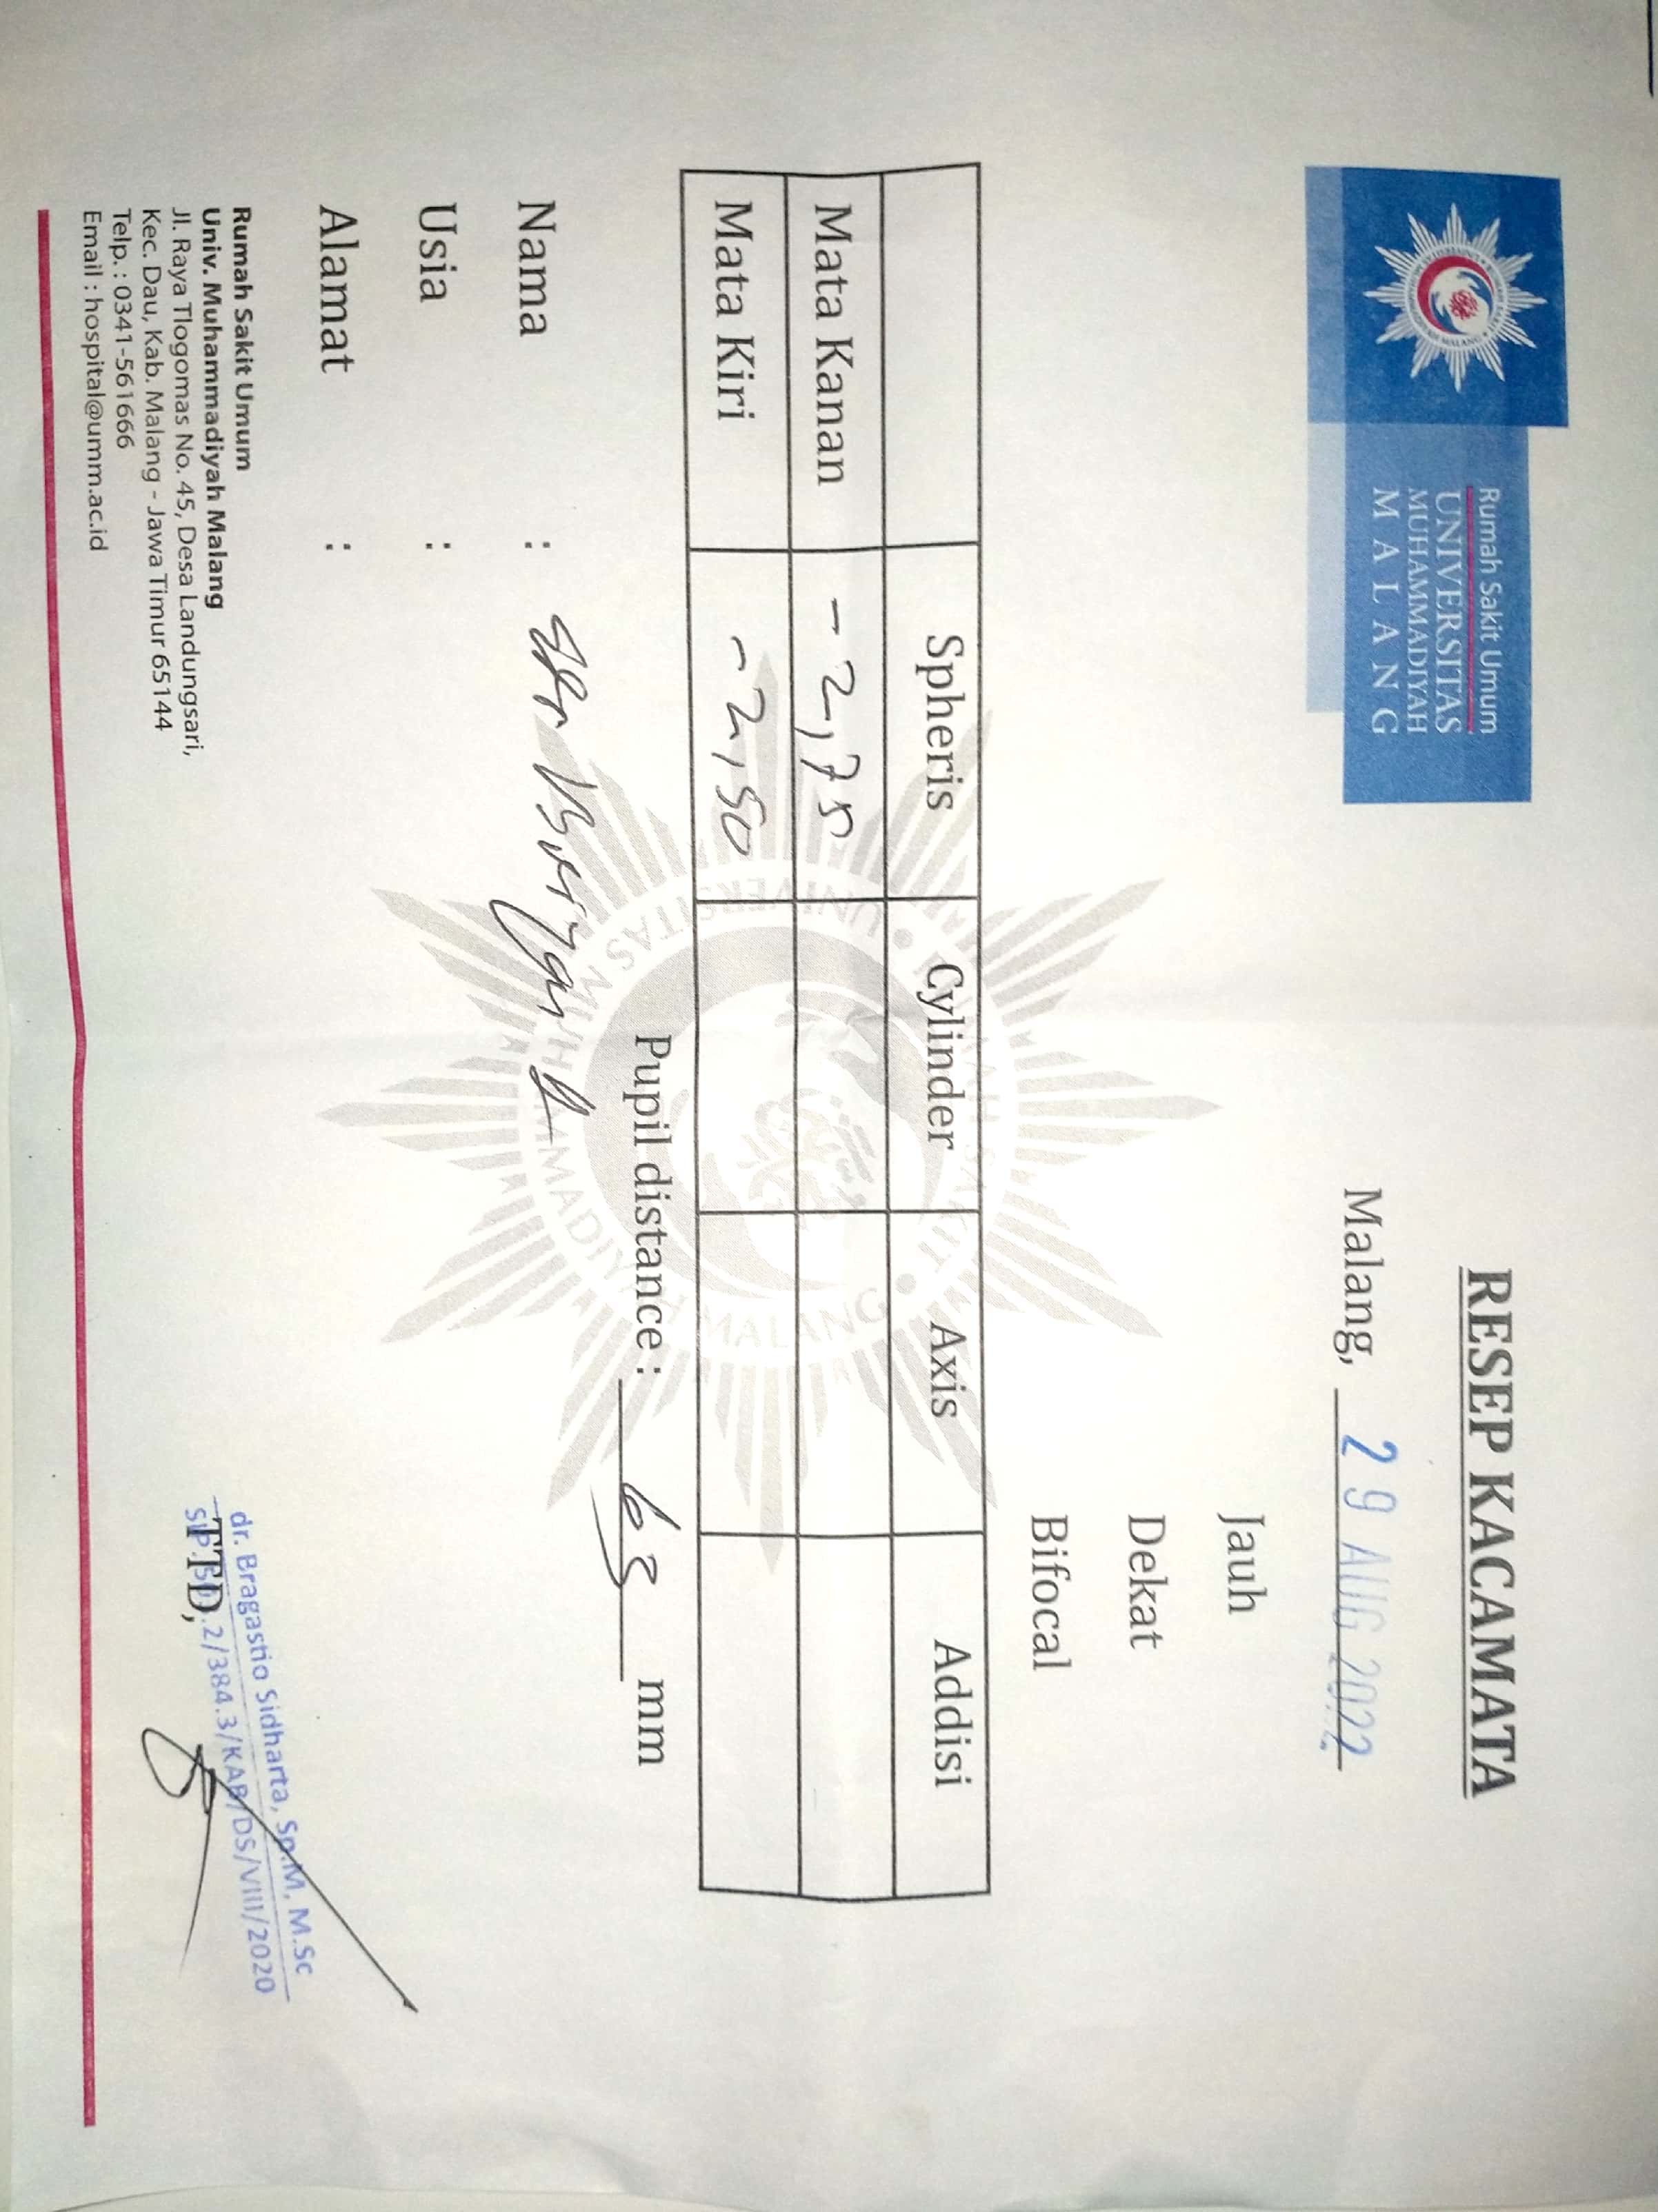 Rumah Sakit Umum
UNIVERSITAS
MUHAMMADIYAH
MALANG
RESEP KACAMATA
Malang, 29 AUG 2022
Jauh
Dekat
Bifocal
Spheris Cylinder Axis Addisi
Mata Kanan -2,75
Mata Kiri -2,50
Pupil distance : 63 mm
Nama :
Usia :
Alamat :
dr. Bragastio Sidharta, Sp.M, M.Sc
TTD,
Rumah Sakit Umum
Univ. Muhammadiyah Malang
Jl. Raya Tlogomas No. 45, Desa Landungsari,
Kec. Dau, Kab. Malang - Jawa Timur 65144
Telp. : 0341-561666
Email : hospital@umm.ac.id